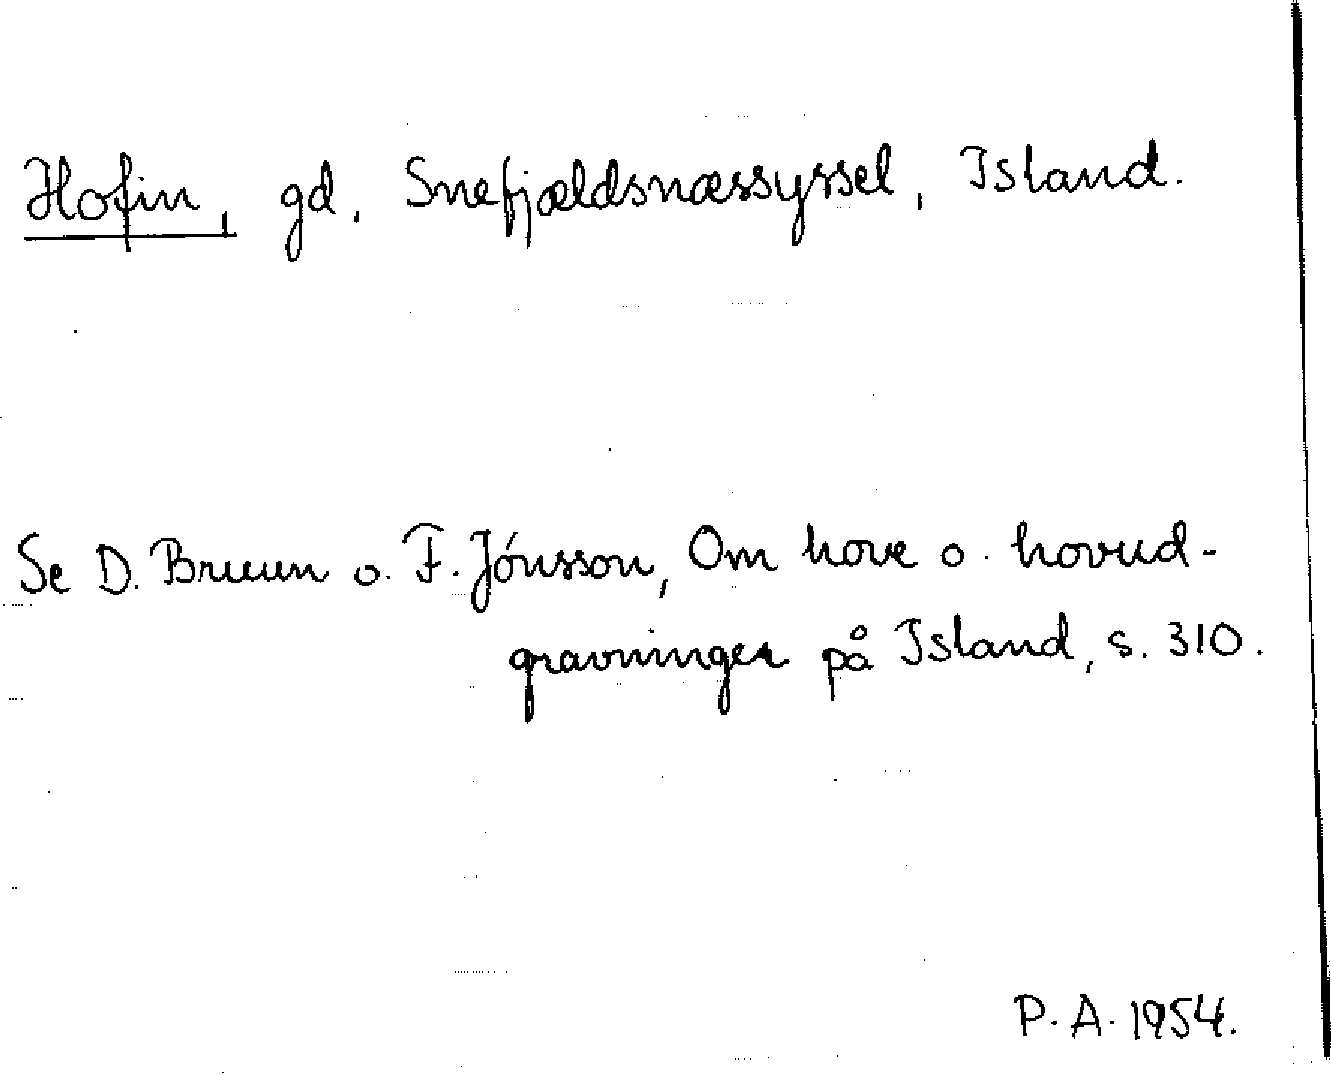 Hofin, gd. Snefjældsnæssyssel, Island.
Se D. Bruun o. F. Jónsson, Om hove o. hovud-
gravninger på Island, s. 310.
P. A. 1954.